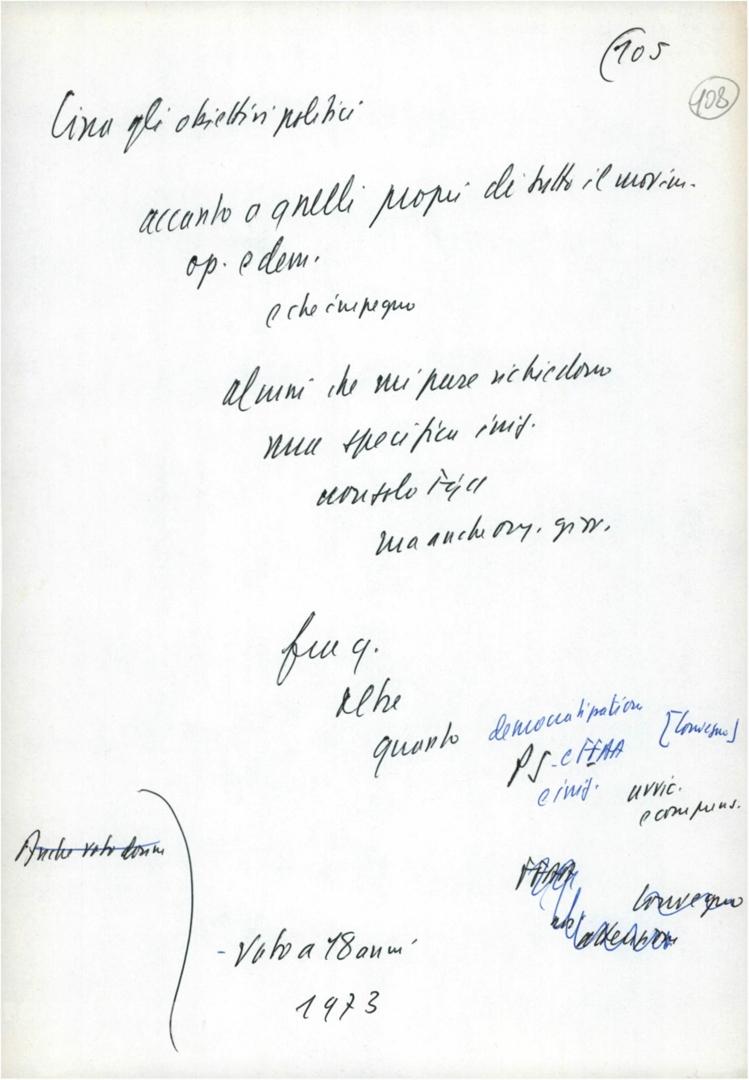 (105
108
Circa gli obiettivi politici
accanto a quelli propri di tutto il movim.
op. e dem.
e che impegno
alcuni che mi pare richiedono
una specifica iniz.
non solo Fgci
ma anche org. giov.
fra q.
oltre
quanto democratization [Convegno]
PS e FFAA
e iniz. avvic.
e compens.
Anche voto donne
FFAA
Convegno
attenzione
- Voto a 18 anni
1973